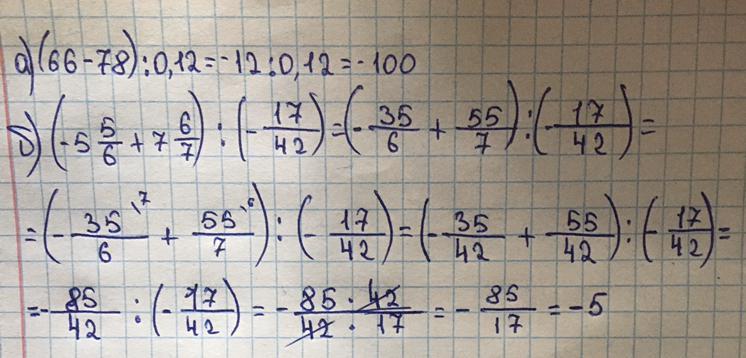 а) (66-78):0,12=-12:0,12=-100
б) (-5 5/6 + 7 6/7) : (- 17/42) = (- 35/6 + 55/7) : (- 17/42) =
= (- 35\7/6 + 55\6/7) : (- 17/42) = (- 35/42 + 55/42) : (- 17/42) =
= - 85/42 : (- 17/42) = - 85 · 42/42 · 17 = - 85/17 = -5